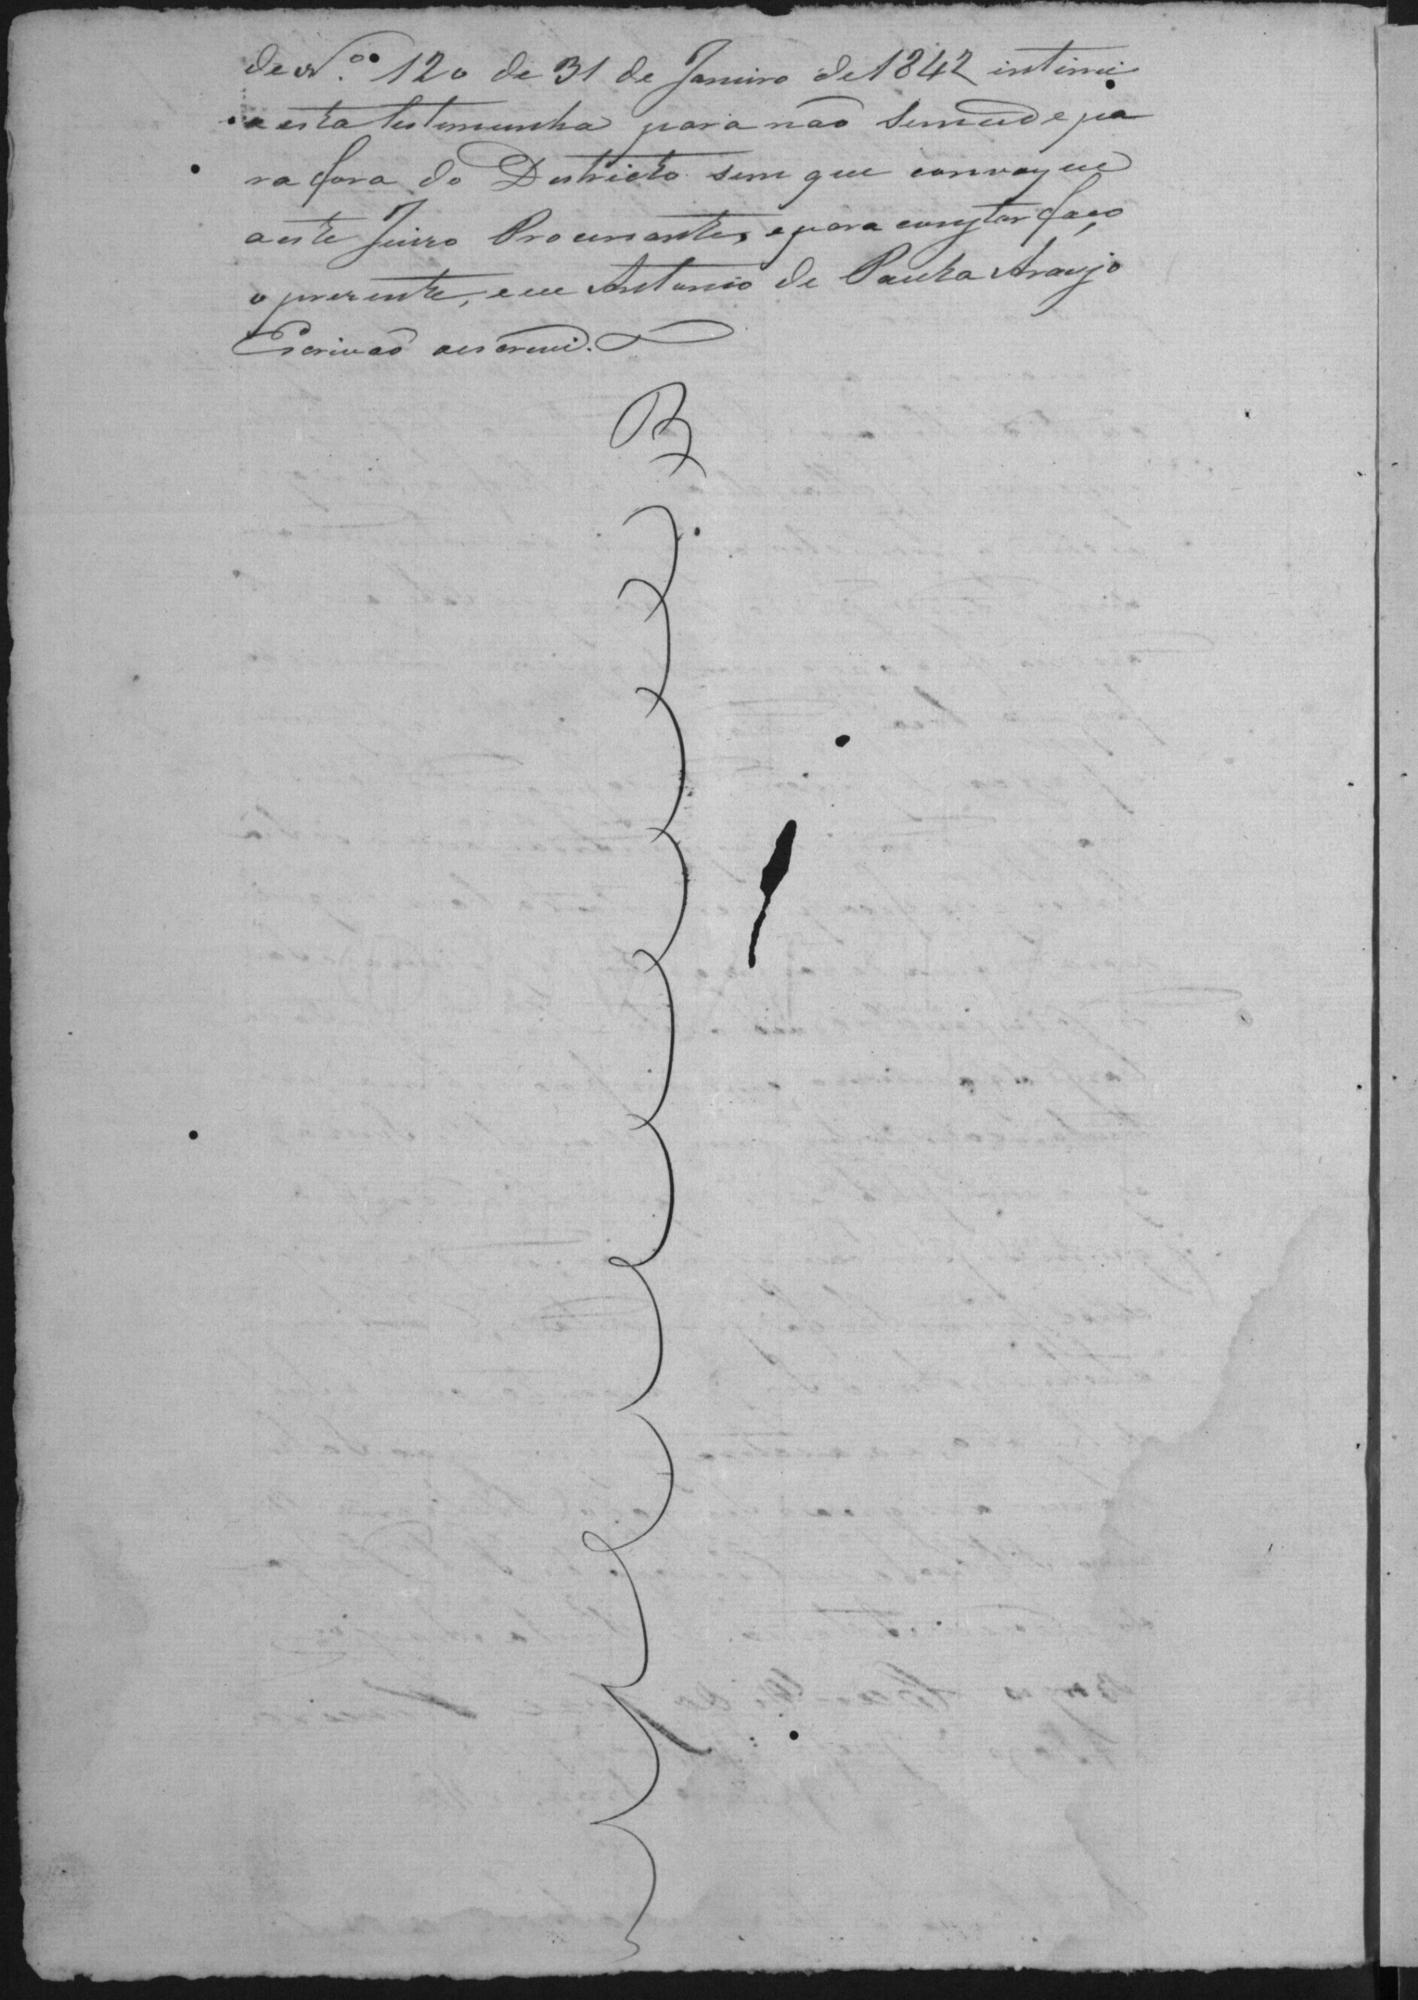 de N.º 120 de 31 de Janeiro de 1842 intimei
a esta testemunha para não se mude pa
ra fora do Destricto sem que
a este Juizo Processante, e para constar faço
o presente, e eu Antonio de Paula Araujo
Escrivão a escrevi.